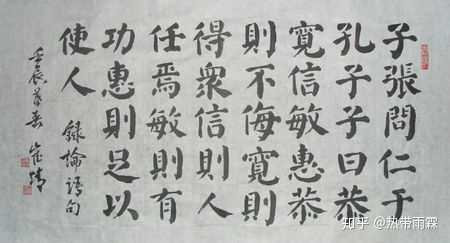 子張問仁于
孔子子曰恭
寬信敏惠恭
則不侮寬則
得衆信則人
任焉敏則有
功惠則足以
使人 錄論語句
壬辰
知乎 @热带雨霖